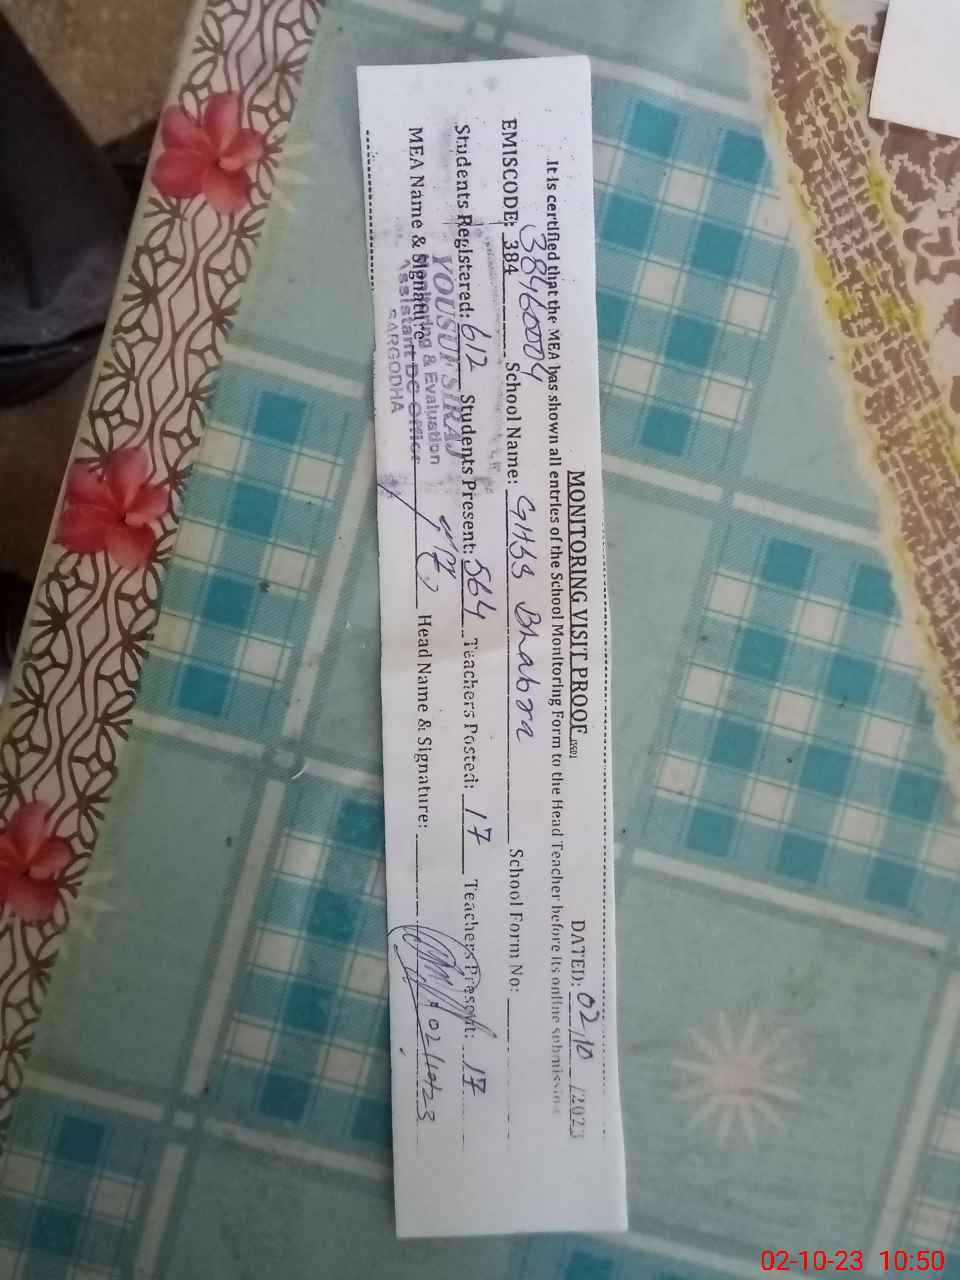 MONITORING VISIT PROOF (SED) DATED: 02/10/2023
It is certified that the MEA has shown all entries of the School Monitoring Form to the Head Teacher before its online submission
38460004
EMISCODE: 384 School Name: GHSS Bhabra School Form No:
Students Registered: 612 Students Present: 564 Teachers Posted: 17 Teachers Present: 17
MEA Name & Signature: Head Name & Signature: 02/10/23
YOUSUF SIRAJ
Monitoring & Evaluation
Assistant DC Office
SARGODHA
02-10-23 10:50